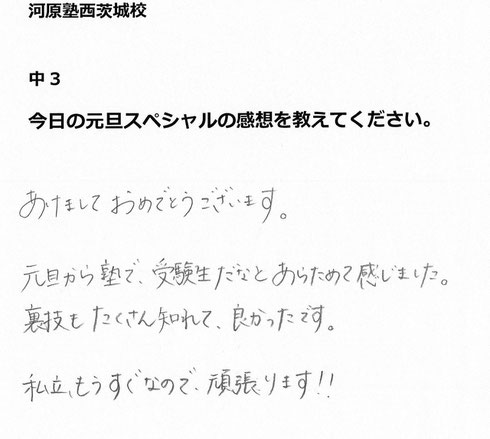 河原塾西茨城校
中3
今日の元旦スペシャルの感想を教えてください。
あけましておめでとうございます。
元旦から塾で、受験生だなとあらためて感じました。
裏技もたくさん知れて、良かったです。
私立、もうすぐなので、頑張ります!!